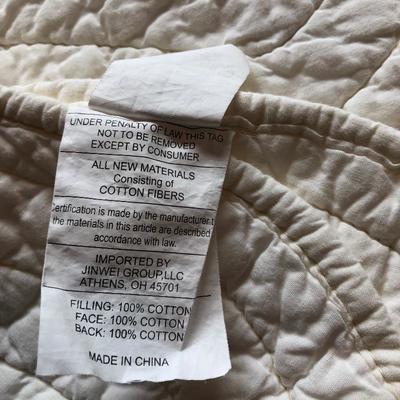 UNDER PENALTY OF LAW THIS TAG
NOT TO BE REMOVED
EXCEPT BY CONSUMER
ALL NEW MATERIALS
Consisting of
COTTON FIBERS
Certification is made by the manufacturer t
the materials in this article are described
accordance with law.
IMPORTED BY
JINWEI GROUP,LLC
ATHENS, OH 45701
FILLING: 100% COTTON
FACE: 100% COTTON
BACK: 100% COTTON
MADE IN CHINA